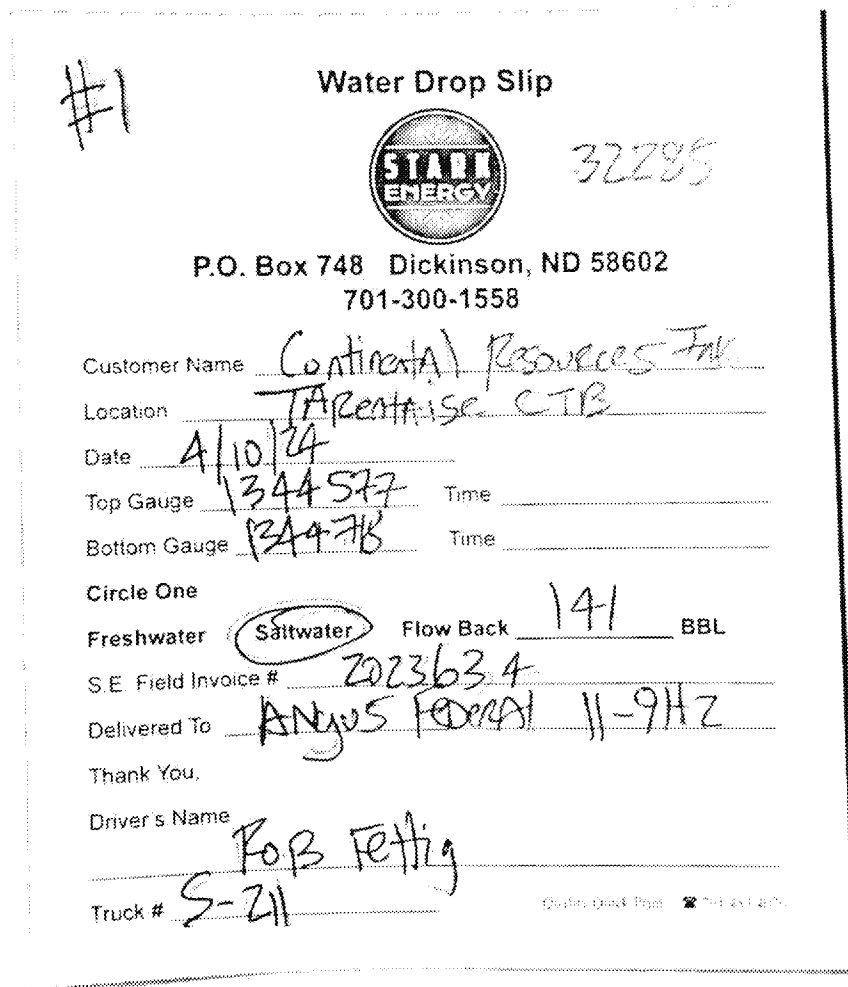 #1
Water Drop Slip
STARK
ENERGY
32285
P.O. Box 748 Dickinson, ND 58602
701-300-1558
Customer Name Continental Resources Ink
Location TARentaise CTB
Date 4/10/24
Top Gauge 1344577 Time
Bottom Gauge 1344718 Time
Circle One
Freshwater Saltwater Flow Back 141 BBL
S.E. Field Invoice # 2023634
Delivered To ANgus FeDerAl 11-9H2
Thank You,
Driver's Name
RoB Fettig
Truck # S-211